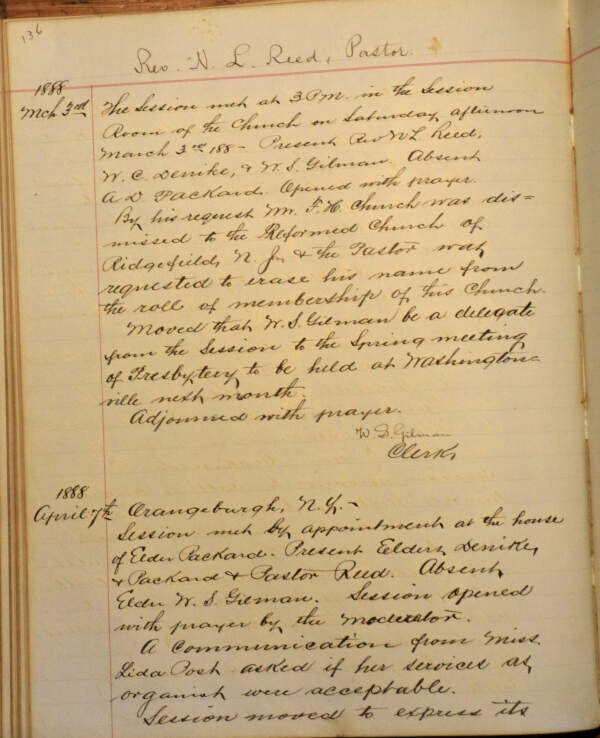 136
Rev. N. L. Reed, Pastor.
1888
Mch 3rd
The Session met at 3 P.M. in the Session
Room of the Church on Saturday afternoon
March 3rd 188- Present Rev N L Reed,
W. C. Denike, & W. S. Gilman. Absent
A D Packard. Opened with prayer.
By his request Mr. F. H. Church was dis=
missed to the Reformed Church of
Ridgefield, N. J., & the Pastor was
requested to erase his name from
the roll of membership of this Church.
Moved that W. S. Gilman be a delegate
from the Session to the Spring meeting
of Presbytery to be held at Washington=
ville next month.
Adjourned with prayer.
W S Gilman
Clerk
1888
April 7th
Orangeburgh, N. Y. -
Session met by appointment at the house
of Elder Packard. Present Elders Denike,
& Packard & Pastor Reed. Absent
Elder W. S. Gilman. Session opened
with prayer by the Moderator.
A communication from Miss
Lida Post asked if her services as
organist were acceptable.
Session moved to express its